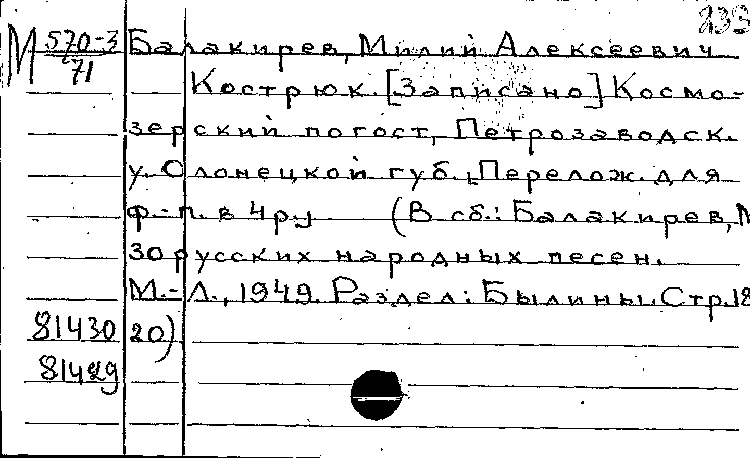 233
М 570-3 Балакирев, Милий Алексеевич
71 Кострюк. [Записано] Космо-
зерский погост, Петрозаводск.
у. Олонецкой губ., Перелож. для
ф.-п. в 4 р.у (В сб.: Балакирев, М
30 русских народных песен.
М.-Л., 1949. Раздел: Былины. Стр. 18
81430 20)
81429